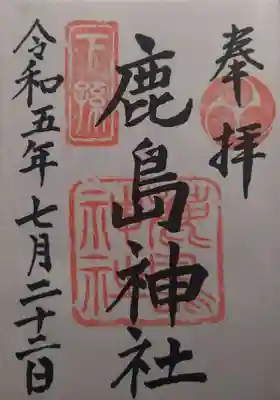 奉拝
鹿島神社
鹿島神社
令和五年七月二十二日